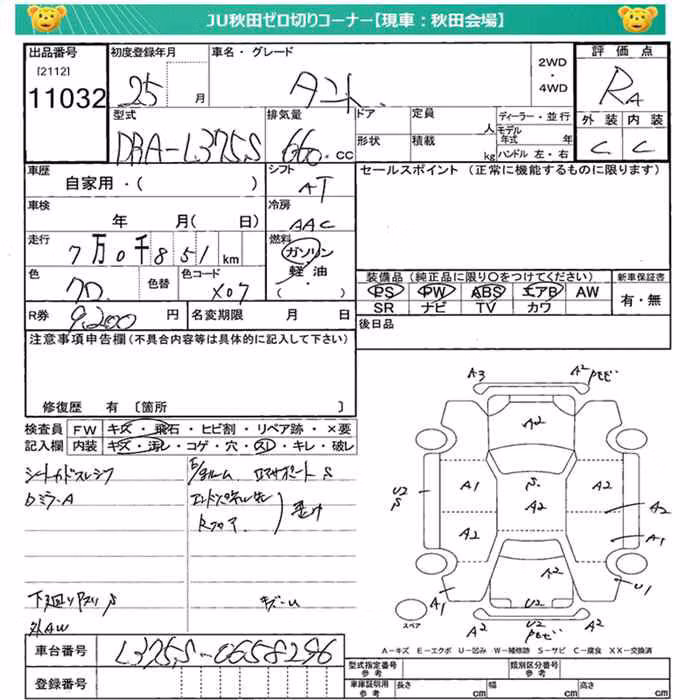 JU秋田ゼロ切りコーナー【現車：秋田会場】
出品番号
[2112]
11032
初度登録年月
25 月
車名・グレード
タント
2WD
・
4WD
評価点
RA
外装 内装
C C
型式
DBA-L375S
排気量
660 cc
ドア
形状
定員
人
積載
kg
ディーラー・並行
モデル年式 年
ハンドル 左・右
車歴
自家用・( )
シフト
AT
セールスポイント (正常に機能するものに限ります)
車検
年 月( 日)
冷房
AAC
走行
7万0千851 km
燃料
ガソリン
・
軽油
・
( )
色
クロ
色替
色コード
X07
装備品 (純正品に限り〇をつけてください)
新車保証書
PS PW ABS エアB AW
SR ナビ TV カワ
有・無
R券
9,200 円
名変期限 月 日
後日品
注意事項申告欄 (不具合内容等は具体的に記入して下さい)
修復歴 有 〔箇所 〕
検査員
記入欄
FW キズ・飛石・ヒビ割・リペア跡・×要
内装 キズ・汚レ・コゲ・穴・スレ・キレ・破レ
ロアサポート S
Rフロア
外AW
車台番号
L375S-0658296
登録番号
A3 A2
A2
A1 S A2
U2
S
A2
A2 A2
A1
A2
A1 U2 U1
A2 U2 A2
スペア
A－キズ E－エクボ U－凹み W－補修跡 S－サビ C－腐食 XX－交換済
型式指定番号
参考
類別区分番号
参考
車庫証明用
参考
長さ cm
幅 cm
高さ cm